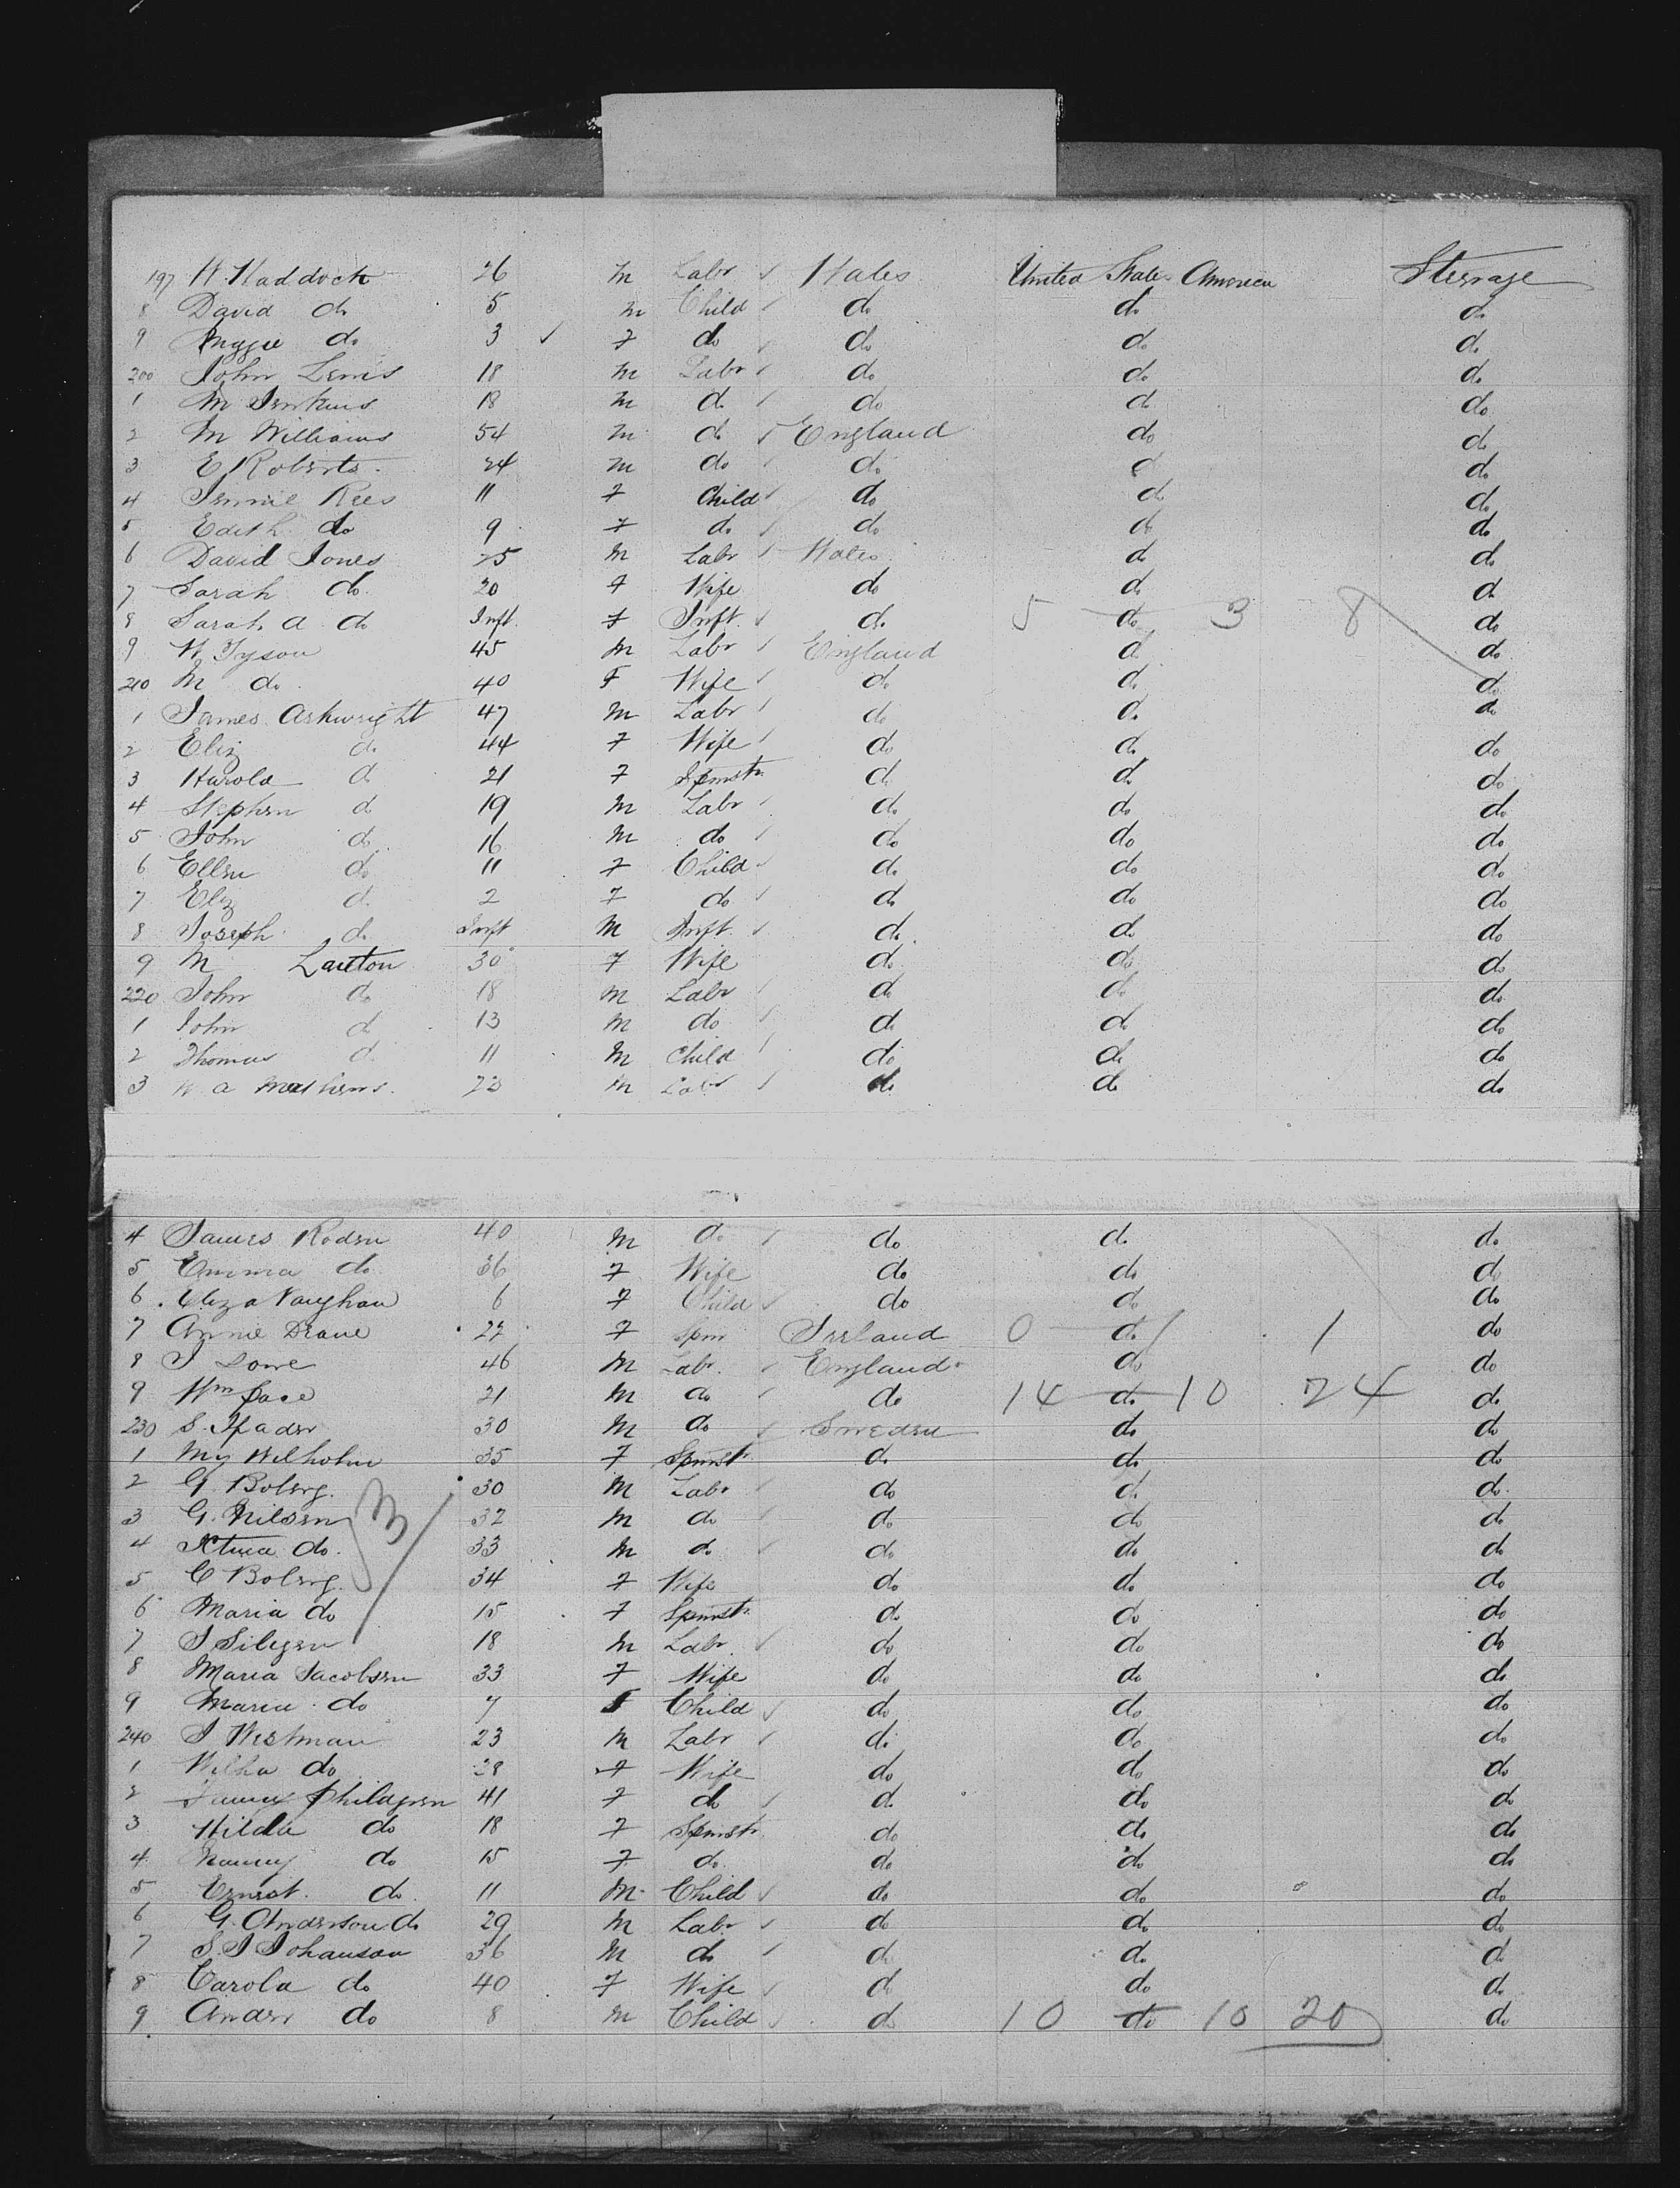 197 W. Haddock 26 m Labr Wales United States America Steerage
8 David do 5 m Child do do do
9 Maggie do 3 F do do do do
200 John Lewis 18 m Labr do do do
1 M Jenkins 18 m do do do do
2 M Williams 54 m do England do do
3 E Roberts 24 m do do do do
4 Jennie Rees 11 F Child do do do
5 Edith do 9 F do do do do
6 David Jones 25 m Labr Wales do do
7 Sarah do 20 F Wife do do do
8 Sarah A do Inft F Inft do 5 do 3 8 do
9 W Tyson 45 m Labr England do do
210 M do 40 F Wife do do do
1 James Arkwright 47 m Labr do do do
2 Eliz do 44 F Wife do do do
3 Harold do 21 F Spinstr do do do
4 Stephen do 19 m Labr do do do
5 John do 16 m do do do do
6 Ellen do 11 F Child do do do
7 Eliz do 2 F do do do do
8 Joseph do Inft m Inft do do do
9 M Lawton 30 F Wife do do do
220 John do 18 m Labr do do do
1 John do 13 m do do do do
2 Thomas do 11 m Child do do do
3 W A Mathews 22 m Labr do do do
4 James Roden 40 m do do do do
5 Emma do 36 F Wife do do do
6 Eliza Vaughan 6 F Child do do do
7 Annie Deane 22 F Spin Ireland 0 do 1 1 do
8 J Lowe 46 m Labr England do do
9 Wm 21 m do do 14 do 10 24 do
230 S. 30 m do Sweden do do
1 My Wilholm 35 F Spinstr do do do
2 G. Boberg 30 m Labr do do do
3 G. Nilsen 32 m do do do do
4 do 33 m do do do do
5 C Boberg 34 F Wife do do do
6 Maria do 15 F Spinstr do do do
7 J 18 m Labr do do do
8 Maria Jacobsen 33 F Wife do do do
9 Maria do 7 F Child do do do
240 J Westman 23 m Labr do do do
1 Wilha do 28 F Wife do do do
2 Fanny 41 F do do do do
3 Hilda do 18 F Spinstr do do do
4 Nanny do 15 F do do do do
5 Ernest do 11 m Child do do do
6 G. Anderson do 29 m Labr do do do
7 S. J Johanson 36 m do do do do
8 Carola do 40 F Wife do do do
9 Ander do 8 m Child do 10 do 10 20 do